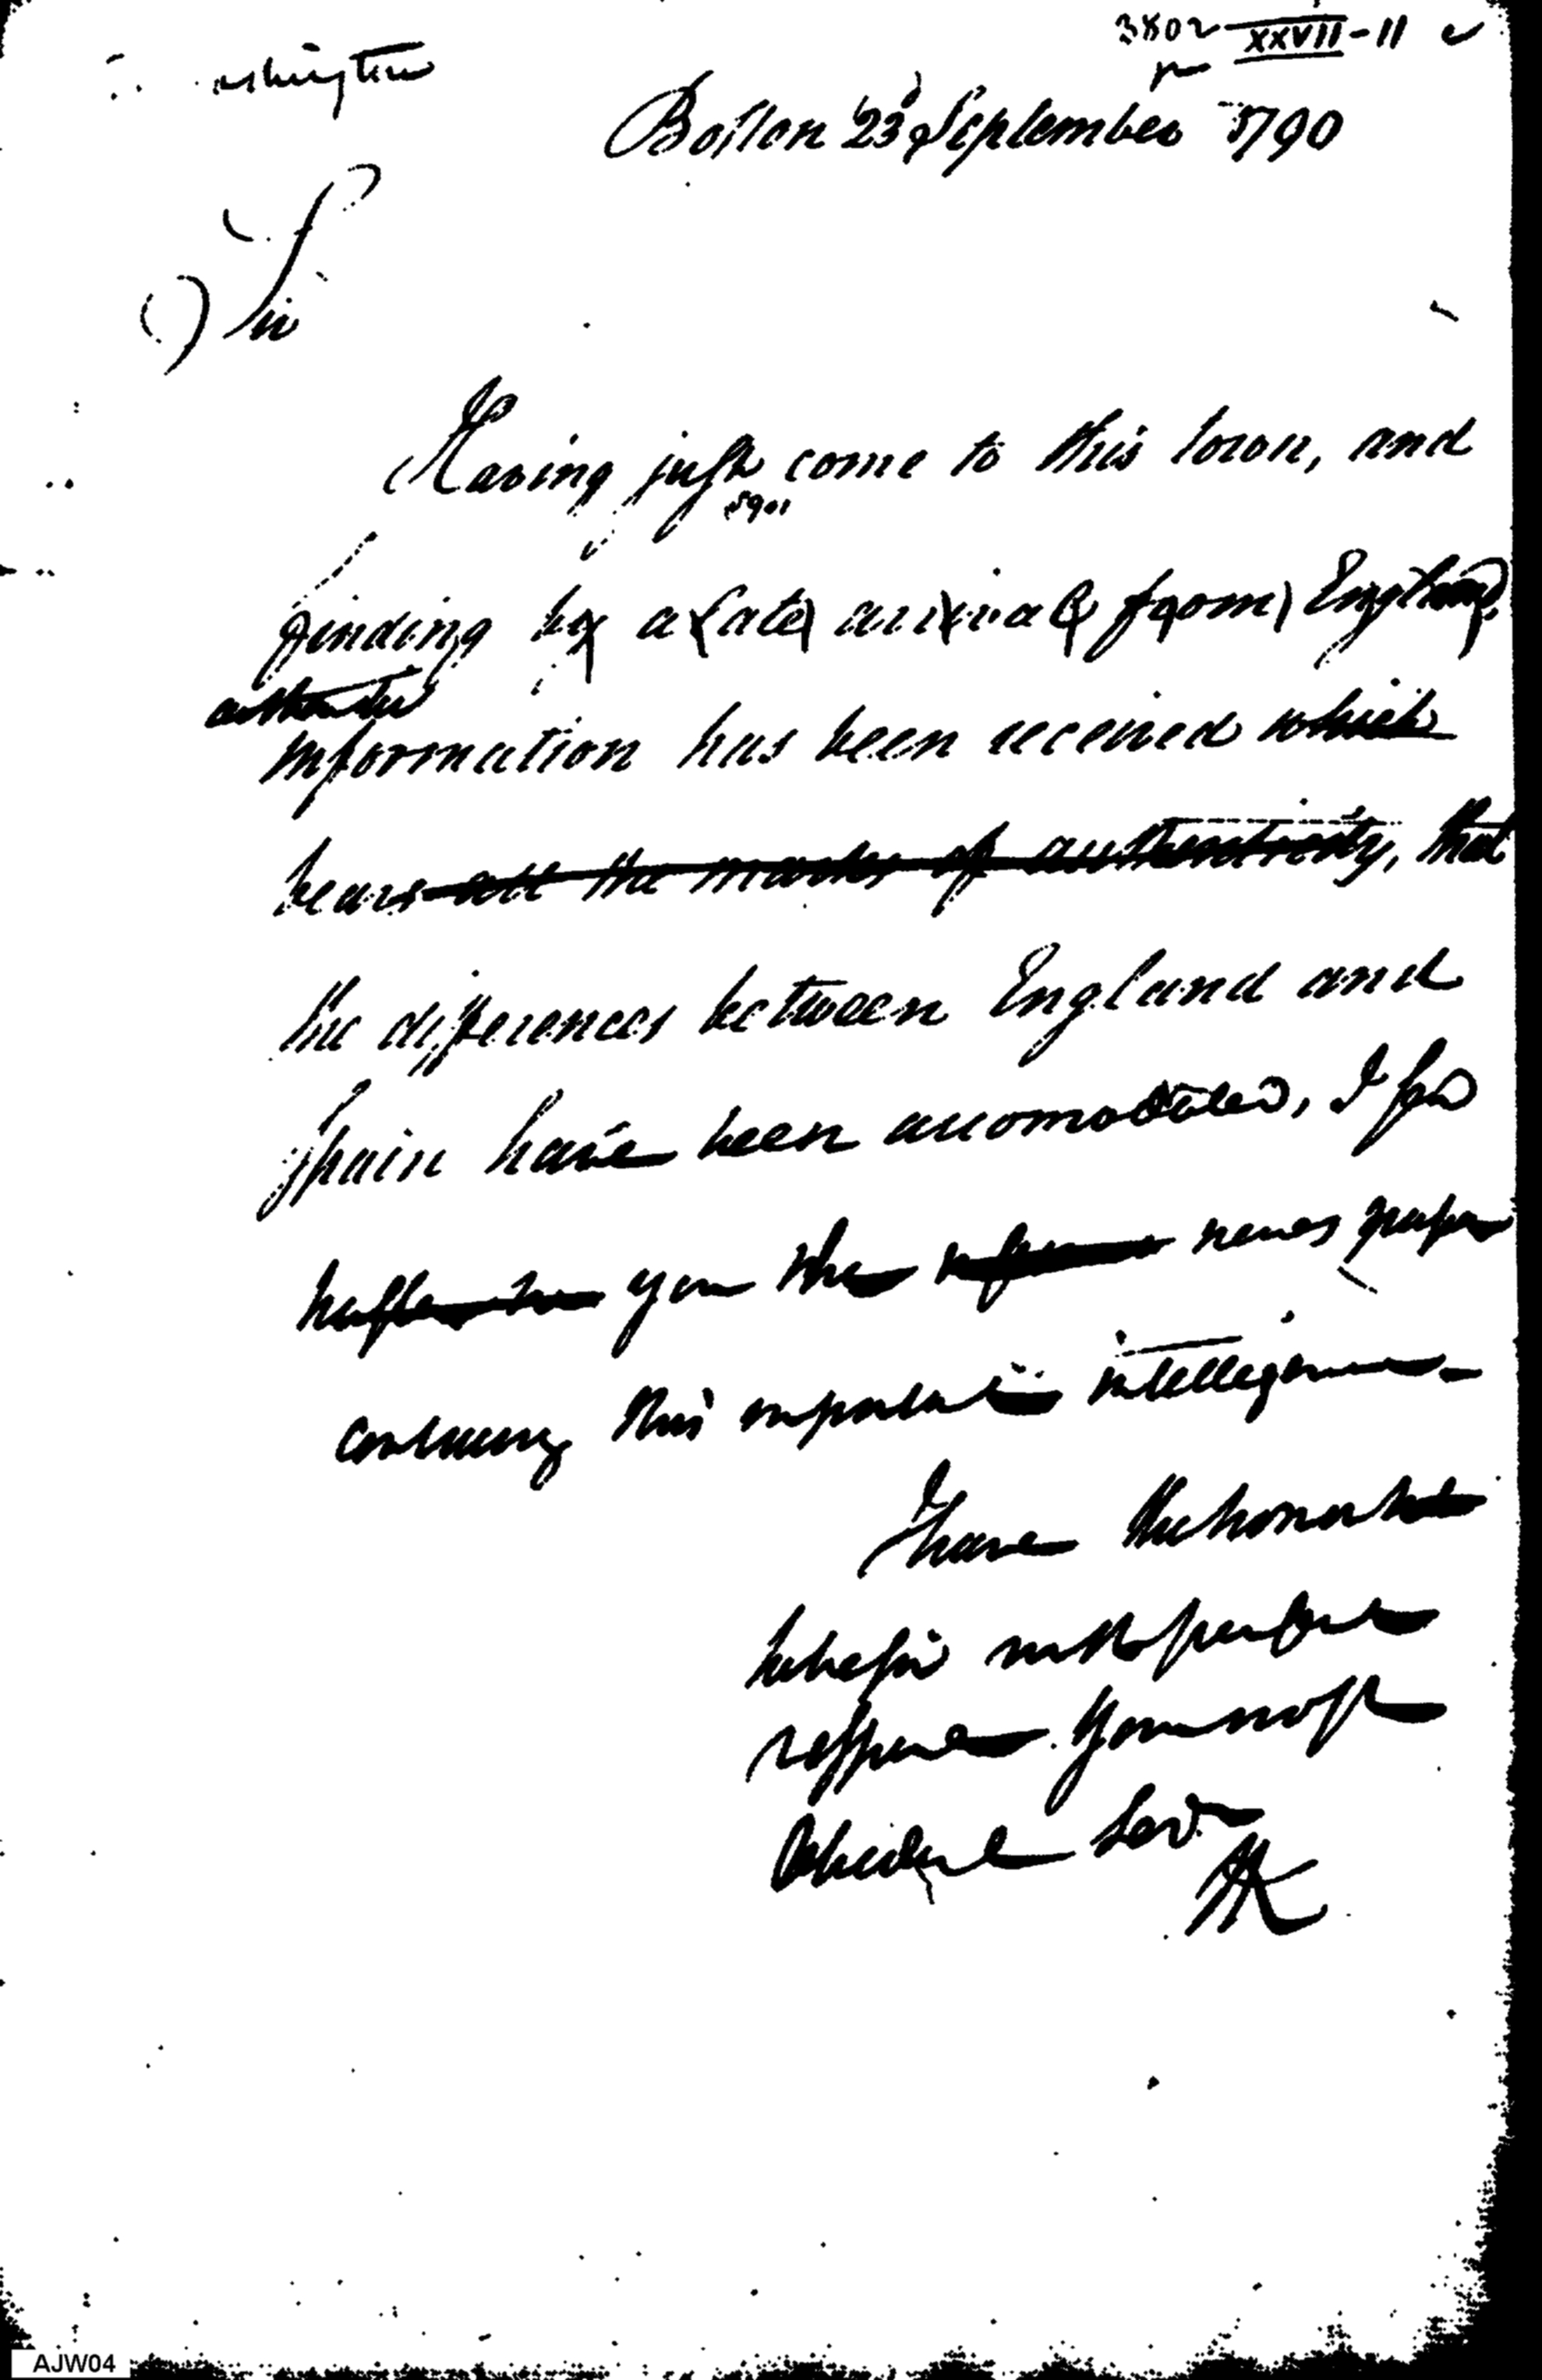 3802 XXVII-11
ashington
Boston 23d September 1790
Sir
Having just come to this town, and
finding by a late arrival from England
authentic
information has been received which
bears all the marks of authenticity, that
the differences between England and
Spain have been accomodated, I for
hasten to you the news paper
containing this important intelligence
I have the honor to
be Sir with perfect
respect Your most
Obedient Serv
HK
AJW04